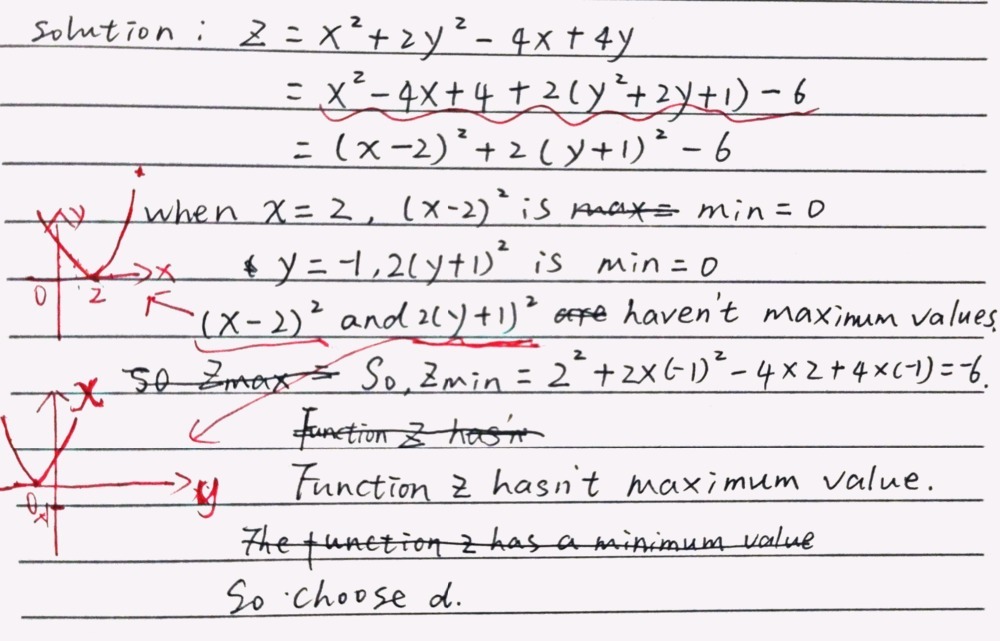 Solution : Z = x² + 2y² - 4x + 4y
= x² - 4x + 4 + 2(y² + 2y + 1) - 6
= (x - 2)² + 2(y + 1)² - 6
when x = 2, (x-2)² is max = min = 0
y = -1, 2(y+1)² is min = 0
(x-2)² and 2(y+1)² are haven't maximum values.
So Zmax = So, Zmin = 2² + 2×(-1)² - 4×2 + 4×(-1) = -6.
Function Z hasn
Function z hasn't maximum value.
The function z has a minimum value
So choose d.
y
x
0
2
x
y
0